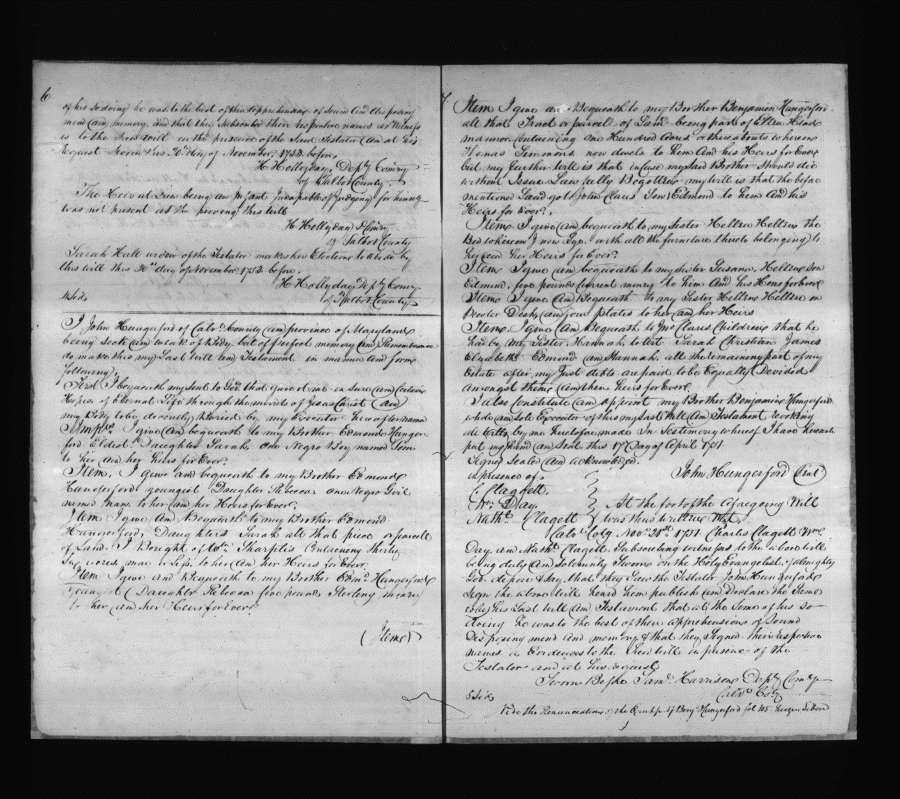 6
of his so doing he was to the best of their apprehensions of sound and disposing
mind and memory, and that they Subscribed their respective names as Witness
es to the foresaid in the presence of the said Testator and at his
Request Sworn this 30th day of November 1753 before
H Hollyday, Depty Comry
of Talbot County
The Heir at Law being an Infant Incapable of Judging for himself
was not present at the proving this Will
H Hollyday D Comry
of Talbot County
Sarah Hall widow of the Testator makes her Election to Abide by
this Will this 30th day of November 1753 before
H Hollyday Depty Comry
of Talbot County
I John Hungerford of Calvt County and province of Maryland
being Sick and weak of Body but of perfect memory and Remembrance
do make this my Last Will and Testament in manner and form
following
First I bequeath my Soul to God that gave it me in Sure and Certain
Hopes of Eternal Life through the merits of Jesus Christ and
my Body to be decently buried by my Executor hereafter named
Imps I give and bequeath to my Brother Edmond Hunger-
ford Eldest Daughter Sarah one Negro Boy named Tom
to her and her Heirs for Ever
Item, I give and bequeath to my Brother Edmond
Hungerford youngest Daughter Rebecca one Negro Girl
named to her and her Heirs for Ever
Item I give And Bequeath to my Brother Edmond
Hungerford, Daughters Sarah all that piece or parcell
of Land I Bought of Wm Sharples Containing Thirty
acres more or Less to her and her Heirs for Ever
Item I give and Bequeath to my Brother Edmd Hungerford
youngest Daughter Rebecca five pounds Sterling money
to her and her Heirs for Ever
(Item)
7
Item I give and Bequeath to my Brother Benjamin Hungerford
all that Tract or parcell of Land being part of
mannor Containing One Hundred Acres whereon
Thomas Simmons now dwells to him and his Heirs for Ever
but my further Will is that in Case my said Brother Should die
without Issue Lawfully Begotten my Will is that the before
mentioned Land go to John Clares Son Edmond to him and his
Heirs for Ever
Item I give and bequeath to my Sister Hellen the
Bed whereon I now Lye with all the furniture thereto belonging to
her and her Heirs for Ever
Item I give and bequeath to my Sister Susana Hellens Son
Edmund, five pounds Current money to him and his Heirs for Ever
Item I give and Bequeath to my Sister Hellen
Pewter Dish, and four plates to her and her Heirs
Item I give And Bequeath to Clares Children that he
had by my Sister Hannah, to Wit Sarah Christian James
Elizabeth Edmund and Hannah all the remaining part of my
Estate after my Just debts are paid to be Equally Devided
amongst them and their Heirs for Ever
I also Constitute and appoint my Brother Benjamin Hungerford
whole and Sole Executor of this my Last Will And Testament, revoking
all by me heretofore made In Testimony whereof I have hereunto
put my hand and Seal this 17th Day of April 1751
Signed Sealed and acknowledged
in presence of
John Hungerford (Seal)
C Clagett
Wm Day
Nathl Clagett
At the foot of the aforegoing Will
was thus written Vizt
Calvt Coty Novr 28th 1751 Charles Clagett Wm
Day and Nathl Clagett Subscribing witnesses to the above Will
being duly and Solemnly Sworn on the Holy Evangelist of almighty
God depose & say that they Saw the Testator John Hungerford
Sign the above Will heard him publish and Declare the Same
to be his Last Will and Testament that at the time of his so
doing he was to the best of their apprehensions of Sound
disposing mind and memory & that they signed their respective
names as Evidences to the said Will in presence of the
Testator and at his request
Sworn Before Saml Harrison Depty Comry
Calvt Coty
Vide the Renunciation of the Exrshp of Benj Hungerford fol 105